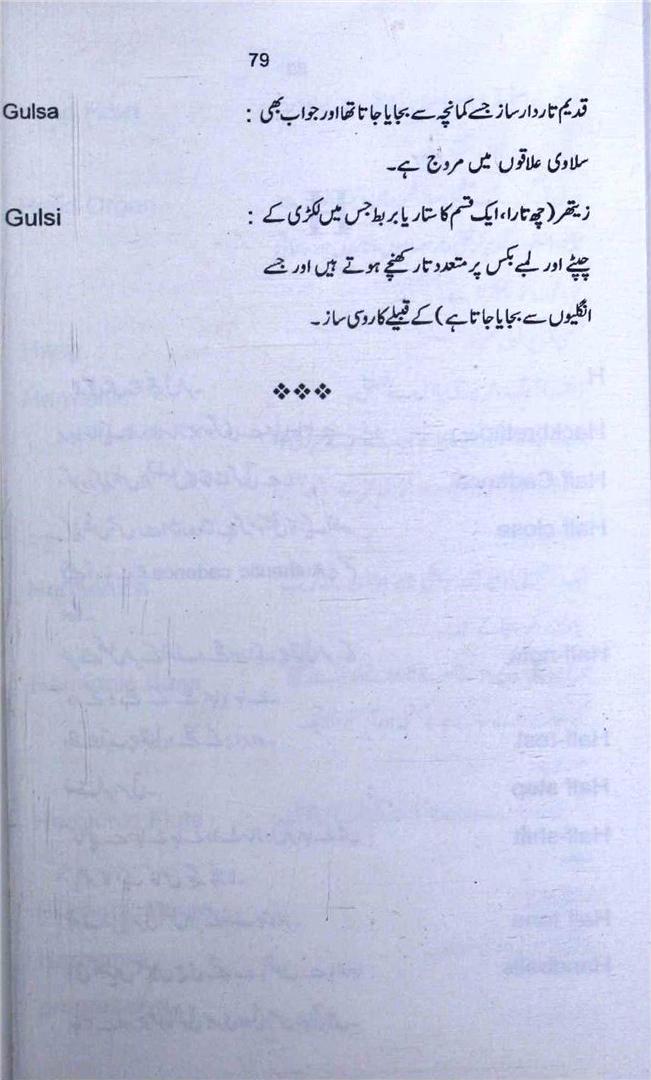 79
Gulsa : قدیم تاردار ساز جسے کمانچہ سے بجایا جاتا تھا اور جو اب بھی
سلاوی علاقوں میں مروج ہے۔
Gulsi : زیتھر (چھ تارا، ایک قسم کا ستار یا بربط جس میں لکڑی کے
چپٹے اور لمبے بکس پر متعدد تار کھنچے ہوتے ہیں اور جسے
انگلیوں سے بجایا جاتا ہے) کے قبیلے کا روسی ساز۔